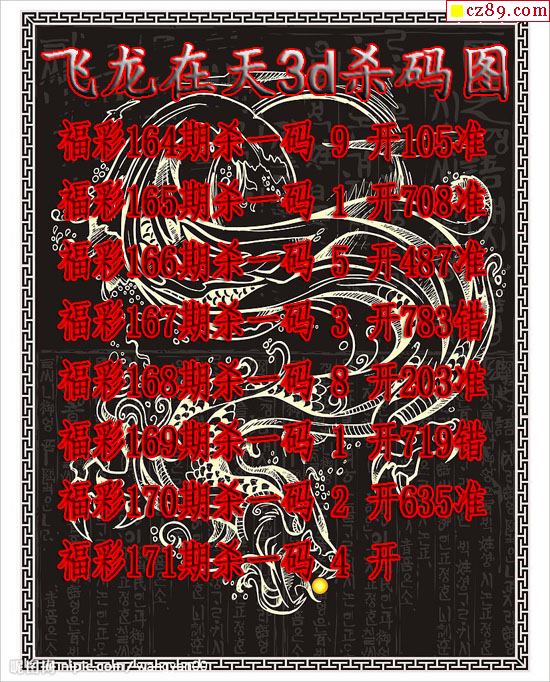 cz89.com
飞龙在天3d杀码图
福彩164期杀一码 9 开105准
福彩165期杀一码 1 开708准
福彩166期杀一码 5 开487准
福彩167期杀一码 3 开783错
福彩168期杀一码 8 开203准
福彩169期杀一码 1 开719错
福彩170期杀一码 2 开635准
福彩171期杀一码 4 开